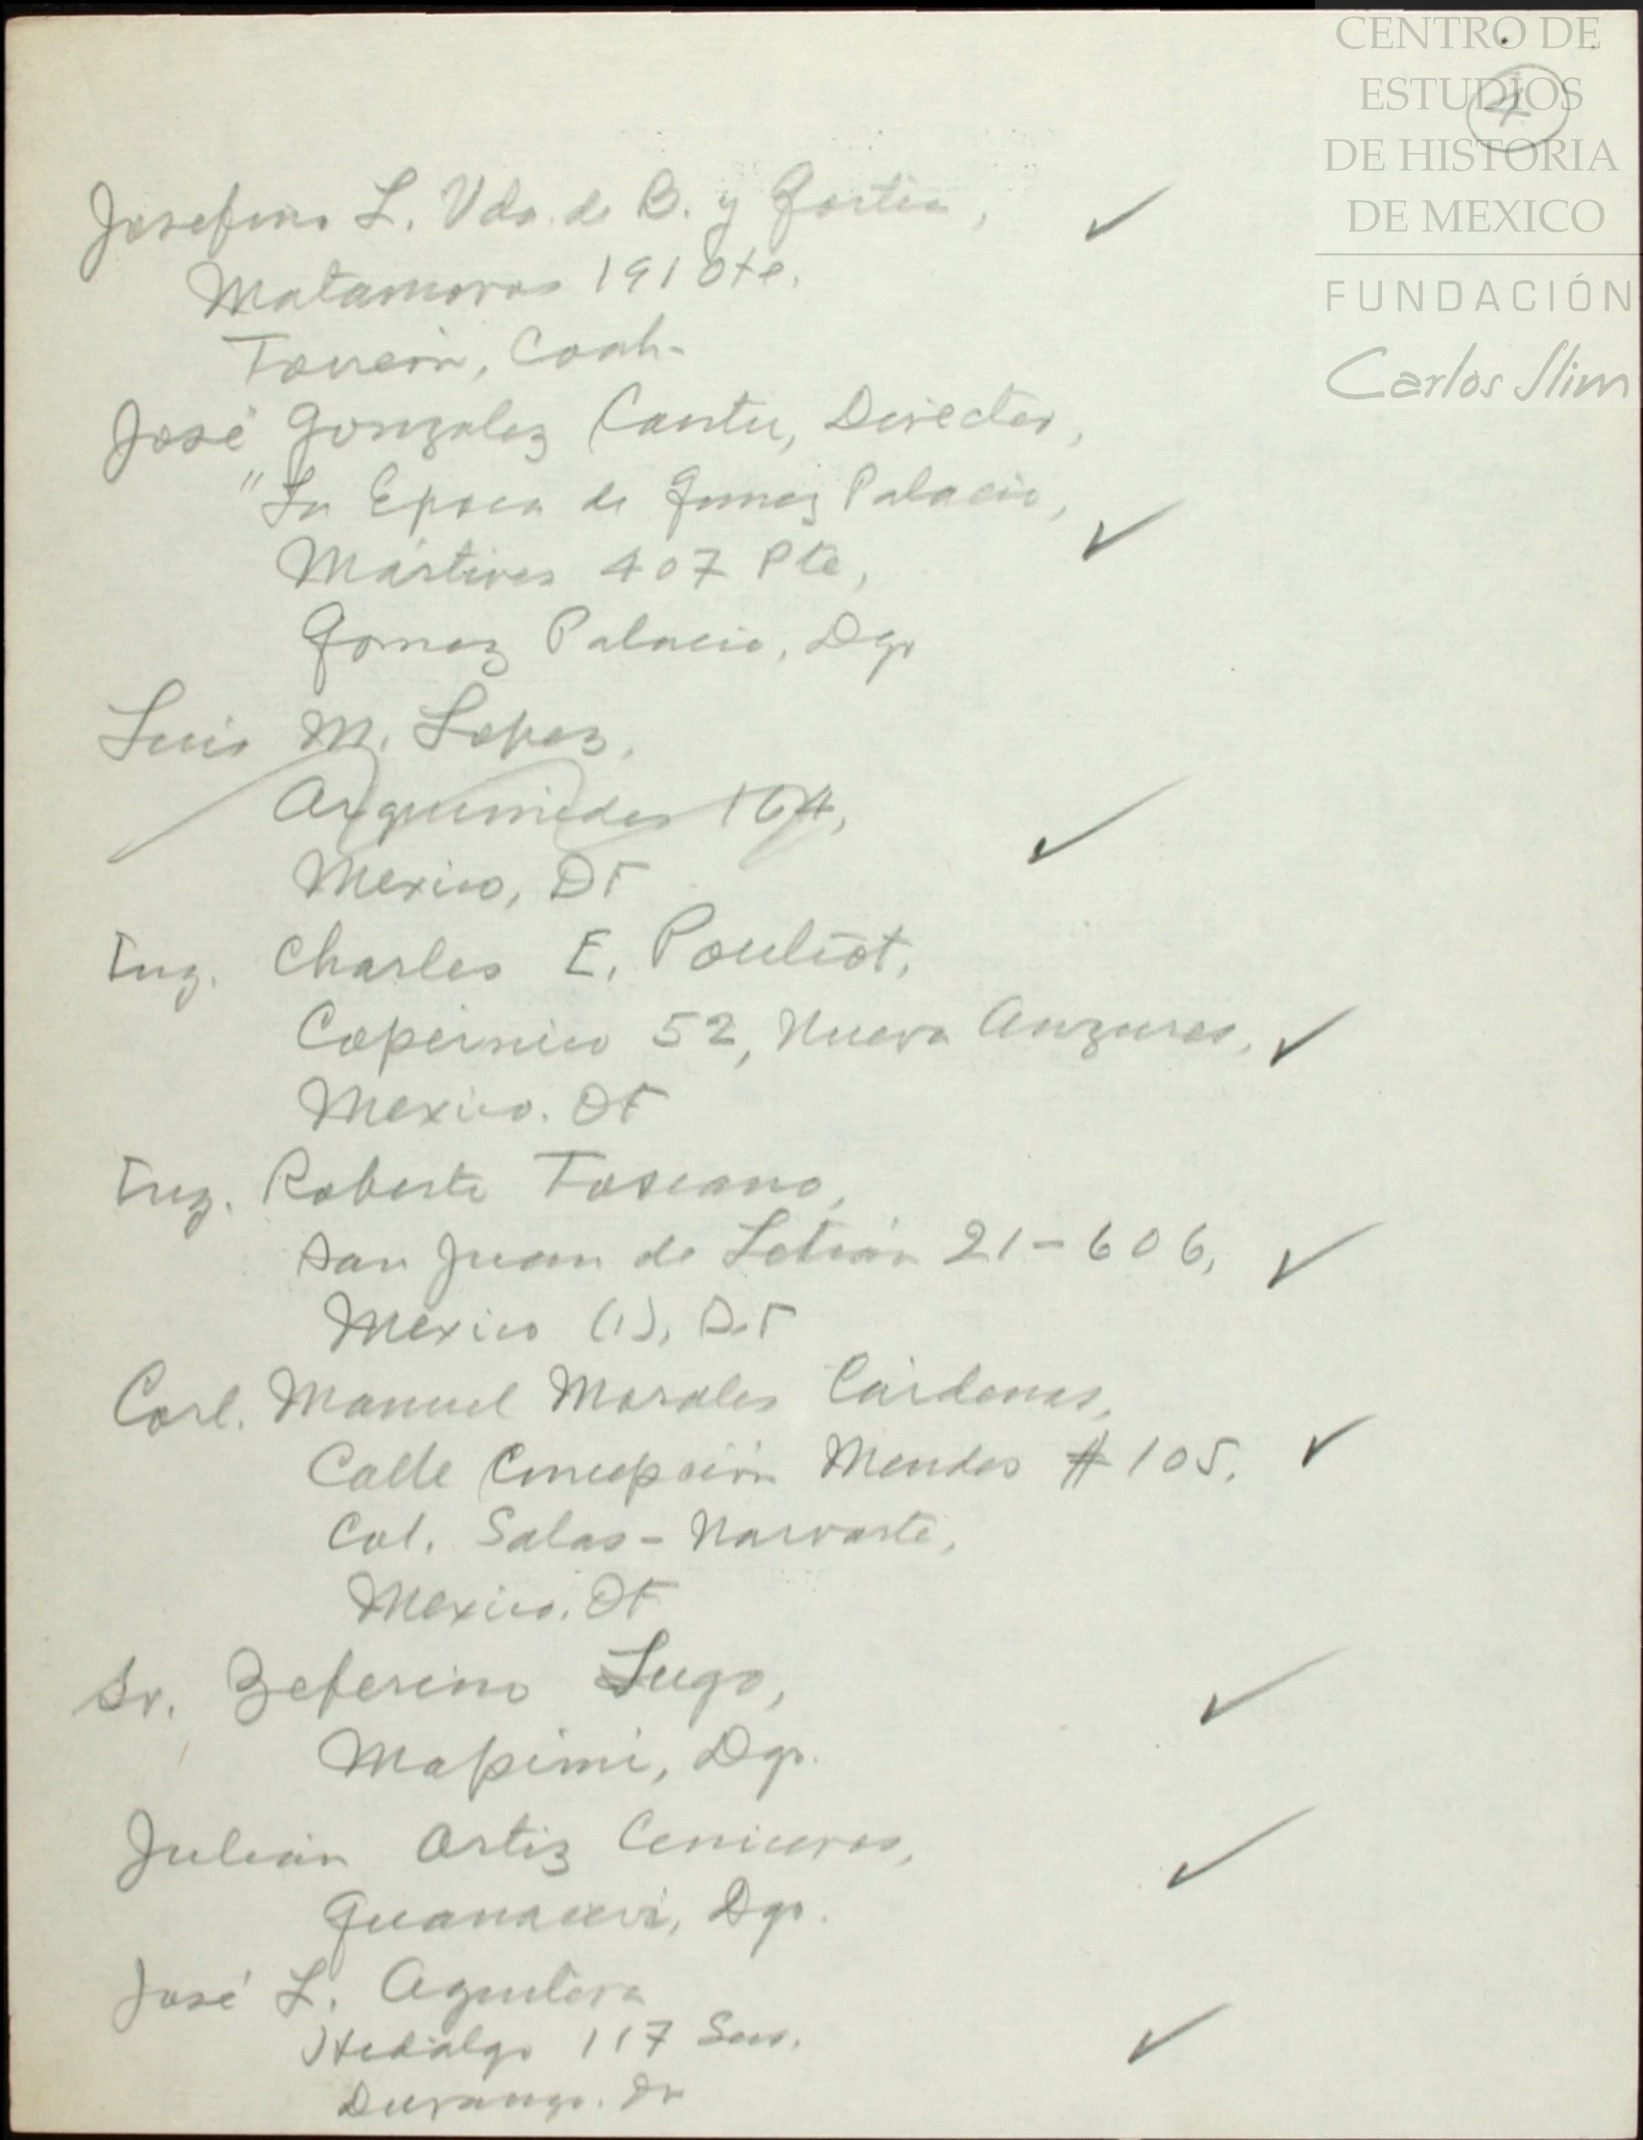 CENTRO DE
ESTUDIOS
DE HISTORIA
DE MEXICO
FUNDACIÓN
Carlos Slim
4
Josefina L. Vda. de B. y
Matamoros 191 Ote.
Torreón, Coah-
José Gonzalez Cantu, Director,
"La Epoca de Gomez Palacio,
Mártires 407 Pte,
Gomez Palacio, Dgo
Luis M. Lopez,
Arquimedes 164,
Mexico, DF
Ing. Charles E. Pouliot,
Copérnico 52, Nueva Anzures,
Mexico. DF
Ing. Roberto Toscano,
San Juan de Letrán 21-606,
Mexico (1), D.F
Corl. Manuel Morales Cárdenas,
Calle Concepción Mendes # 105.
Col. Salas-Narvarte,
Mexico. DF
Sr. Zeferino Lugo,
Mapimi, Dgo.
Julián Ortiz Ceniceros,
Guanacevi, Dgo.
José L. Aguilera
Hidalgo 117 Sur.
Durango.